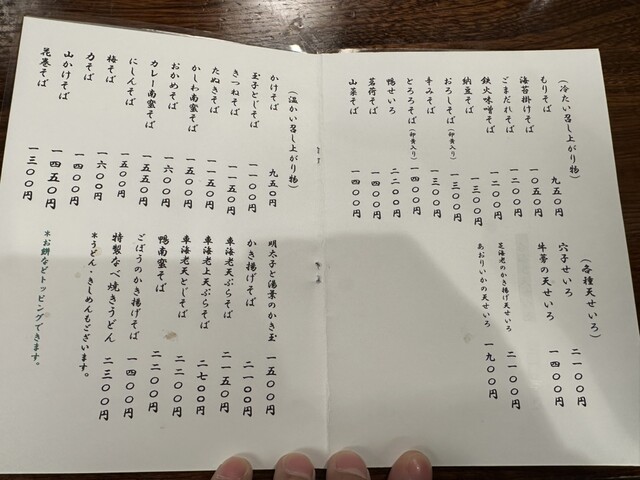 （冷たい召し上がり物）
もりそば 九五〇円
海苔掛けそば 一〇五〇円
ごまだれそば 一二〇〇円
鉄火味噌そば 一二〇〇円
納豆そば 一三〇〇円
おろしそば（卵黄入り） 一三〇〇円
辛みそば 一三〇〇円
とろろそば（卵黄入り） 一四〇〇円
鴨せいろ 二二〇〇円
茗荷そば 一四〇〇円
山菜そば 一四〇〇円
（各種天せいろ）
穴子せいろ 二一〇〇円
牛蒡の天せいろ 一四〇〇円
芝海老のかき揚げ天せいろ 二一〇〇円
あおりいかの天せいろ 一九〇〇円
（温かい召し上がり物）
かけそば 九五〇円
玉子とじそば 一一〇〇円
きつねそば 一一五〇円
たぬきそば 一一五〇円
かしわ南蛮そば 一五〇〇円
おかめそば 一六〇〇円
カレー南蛮そば 一五五〇円
にしんそば 一五〇〇円
梅そば 一六〇〇円
力そば 一四〇〇円
山かけそば 一四五〇円
花巻そば 一三〇〇円
明太子と湯葉のかき玉 一五〇〇円
かき揚げそば 二一〇〇円
車海老天ぷらそば 二一五〇円
車海老上天ぷらそば 二七〇〇円
車海老天とじそば 二二〇〇円
鴨南蛮そば 二二〇〇円
ごぼうのかき揚げそば 一四〇〇円
特製なべ焼きうどん 二三〇〇円
＊うどん・きしめんもございます。
＊お餅などトッピングできます。